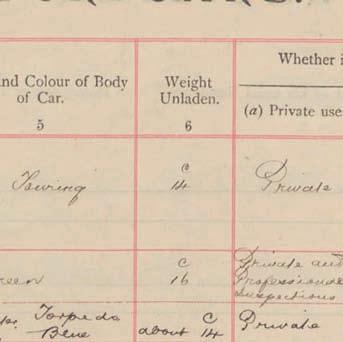 and Colour of Body of Car.
Weight Unladen.
Whether i
(a) Private use
5
6
Touring
c
14
Private
reen
c
16
Private and
Professional
Inspections
Torpedo
Blue
about
c
14
Private